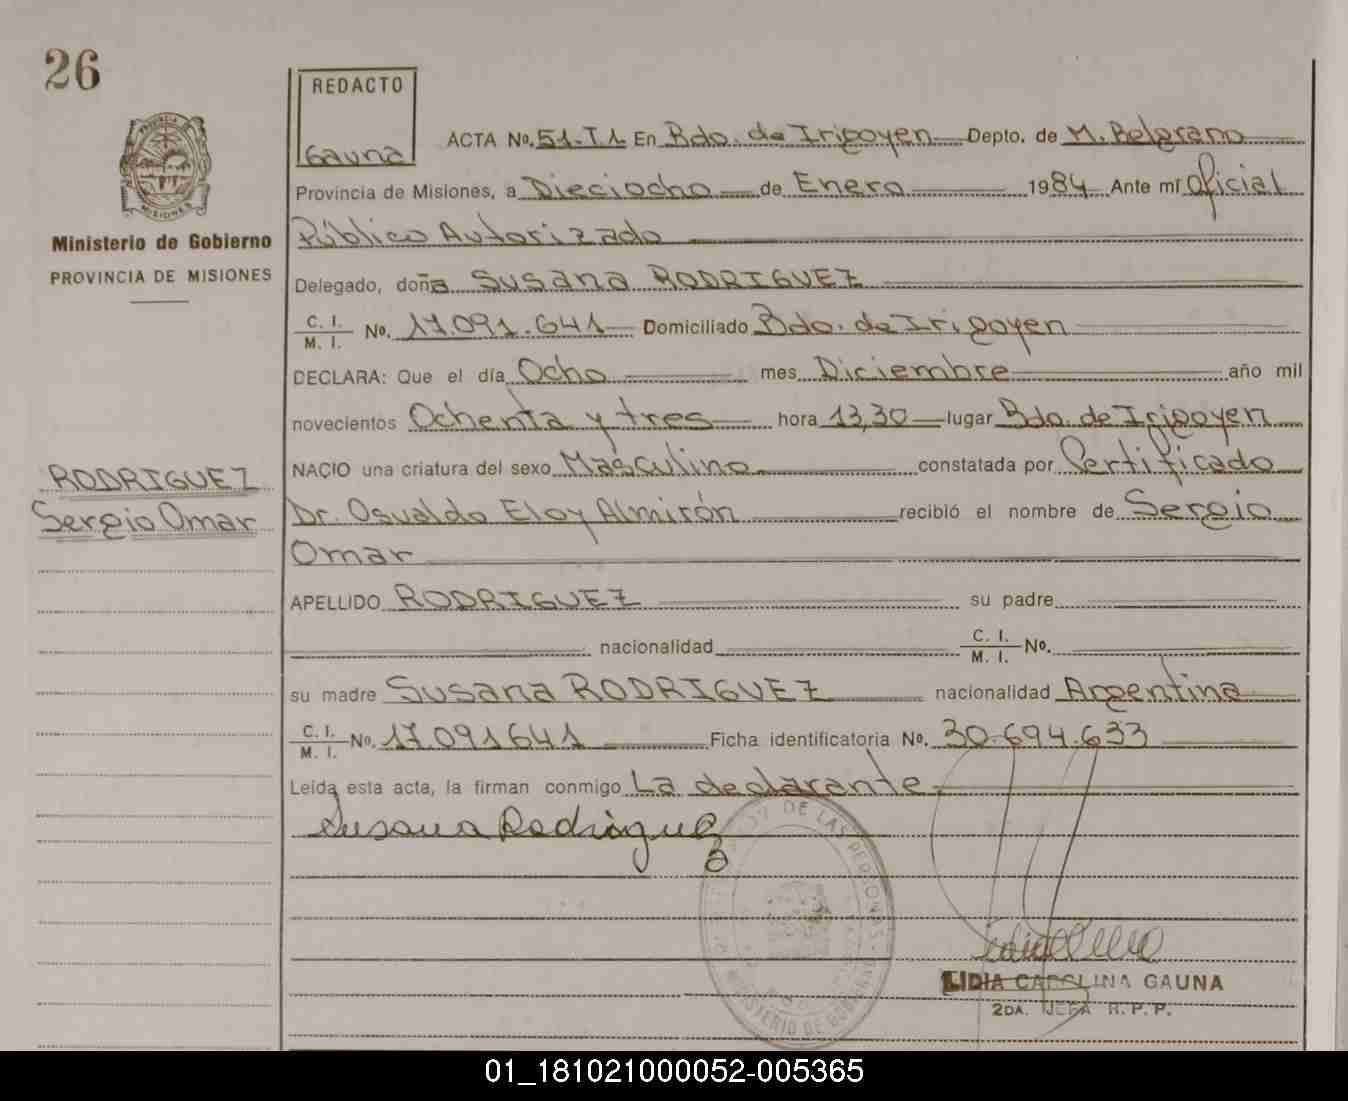 26
REDACTO
Gauna
PROVINCIA DE
MISIONES
Ministerio de Gobierno
PROVINCIA DE MISIONES
ACTA No. 51. T1 En Bdo. de Irigoyen Depto. de M. Belgrano
Provincia de Misiones, a Dieciocho de Enero 1984 Ante mí Oficial
Público Autorizado
Delegado, doña Susana RODRIGUEZ
C. I.
M. I. No. 17.091.641 Domiciliado Bdo. de Irigoyen
DECLARA: Que el día Ocho mes Diciembre año mil
novecientos Ochenta y tres hora 13,30 lugar Bdo. de Irigoyen
NACIO una criatura del sexo Masculino constatada por Certificado
RODRIGUEZ
Sergio Omar
Dr. Osvaldo Eloy Almirón recibió el nombre de Sergio
Omar
APELLIDO RODRIGUEZ su padre
nacionalidad C. I.
M. I. No.
su madre Susana RODRIGUEZ nacionalidad Argentina
C. I.
M. I. No. 17.091641 Ficha identificatoria No. 30.694.633
Leída esta acta, la firman conmigo La declarante
Susana Rodriguez
DE LAS PERSONAS
MINISTERIO DE GOBIERNO
LIDIA CAROLINA GAUNA
2DA. JEFA R. P. P.
01_181021000052-005365